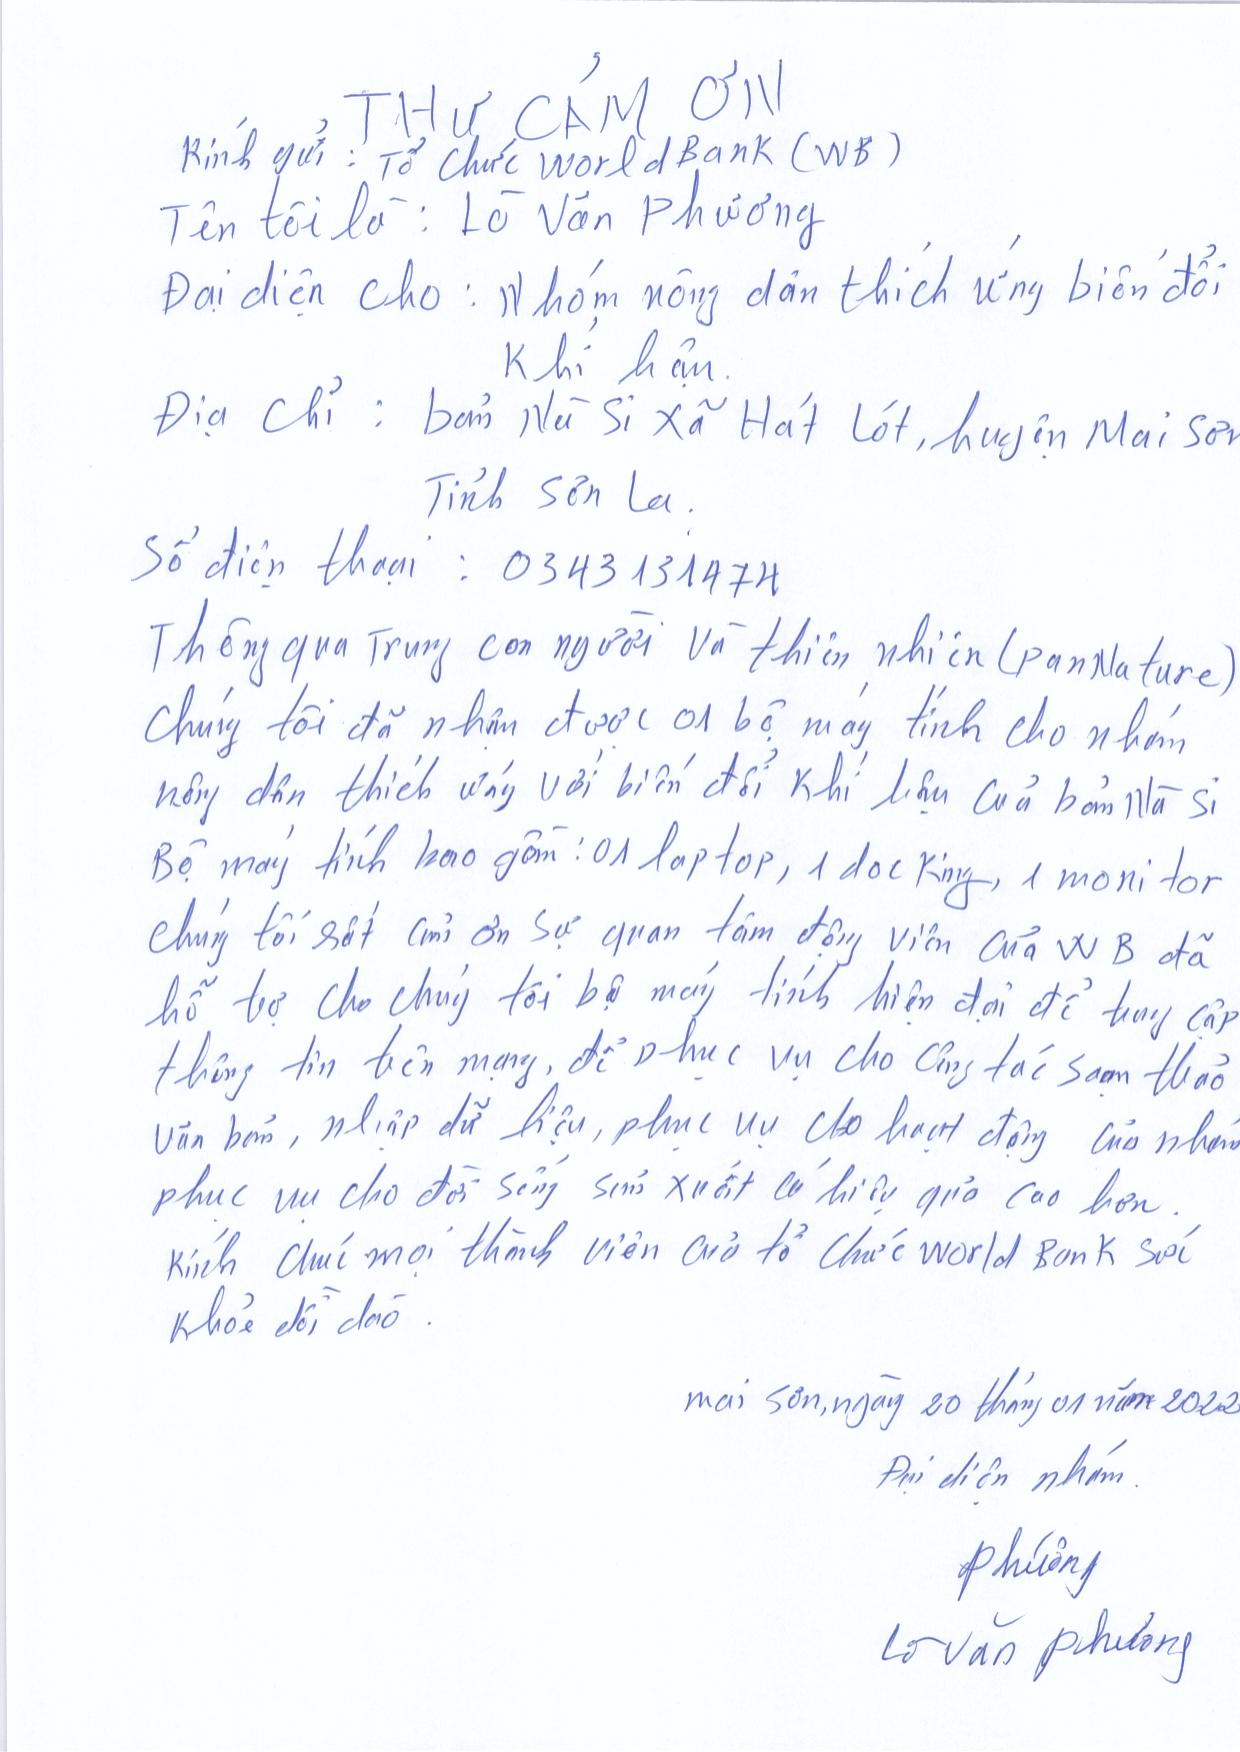 THƯ CẢM ƠN
Kính gửi : Tổ chức World Bank (WB)
Tên tôi là : Lò Văn Phương
Đại diện cho : Nhóm nông dân thích ứng biến đổi
Khí hậu.
Địa chỉ : bản Nà Si xã Hát Lót, huyện Mai Sơn
Tỉnh Sơn La.
Số điện thoại : 0343131474
Thông qua Trung con người và thiên nhiên (PanNature)
Chúng tôi đã nhận được 01 bộ máy tính cho nhóm
nông dân thích ứng với biến đổi khí hậu của bản Nà Si
Bộ máy tính bao gồm : 01 laptop, 1 docking, 1 monitor
chúng tôi rất cảm ơn sự quan tâm động viên của WB đã
hỗ trợ cho chúng tôi bộ máy tính hiện đại để truy cập
thông tin trên mạng, để phục vụ cho công tác soạn thảo
văn bản, nhập dữ liệu, phục vụ cho hoạt động của nhóm
phục vụ cho đời sống sản xuất có hiệu quả cao hơn.
Kính chúc mọi thành viên của tổ chức World Bank sức
khỏe dồi dào.
Mai Sơn, ngày 20 tháng 01 năm 2022
Đại diện nhóm.
Phương
Lò Văn Phương